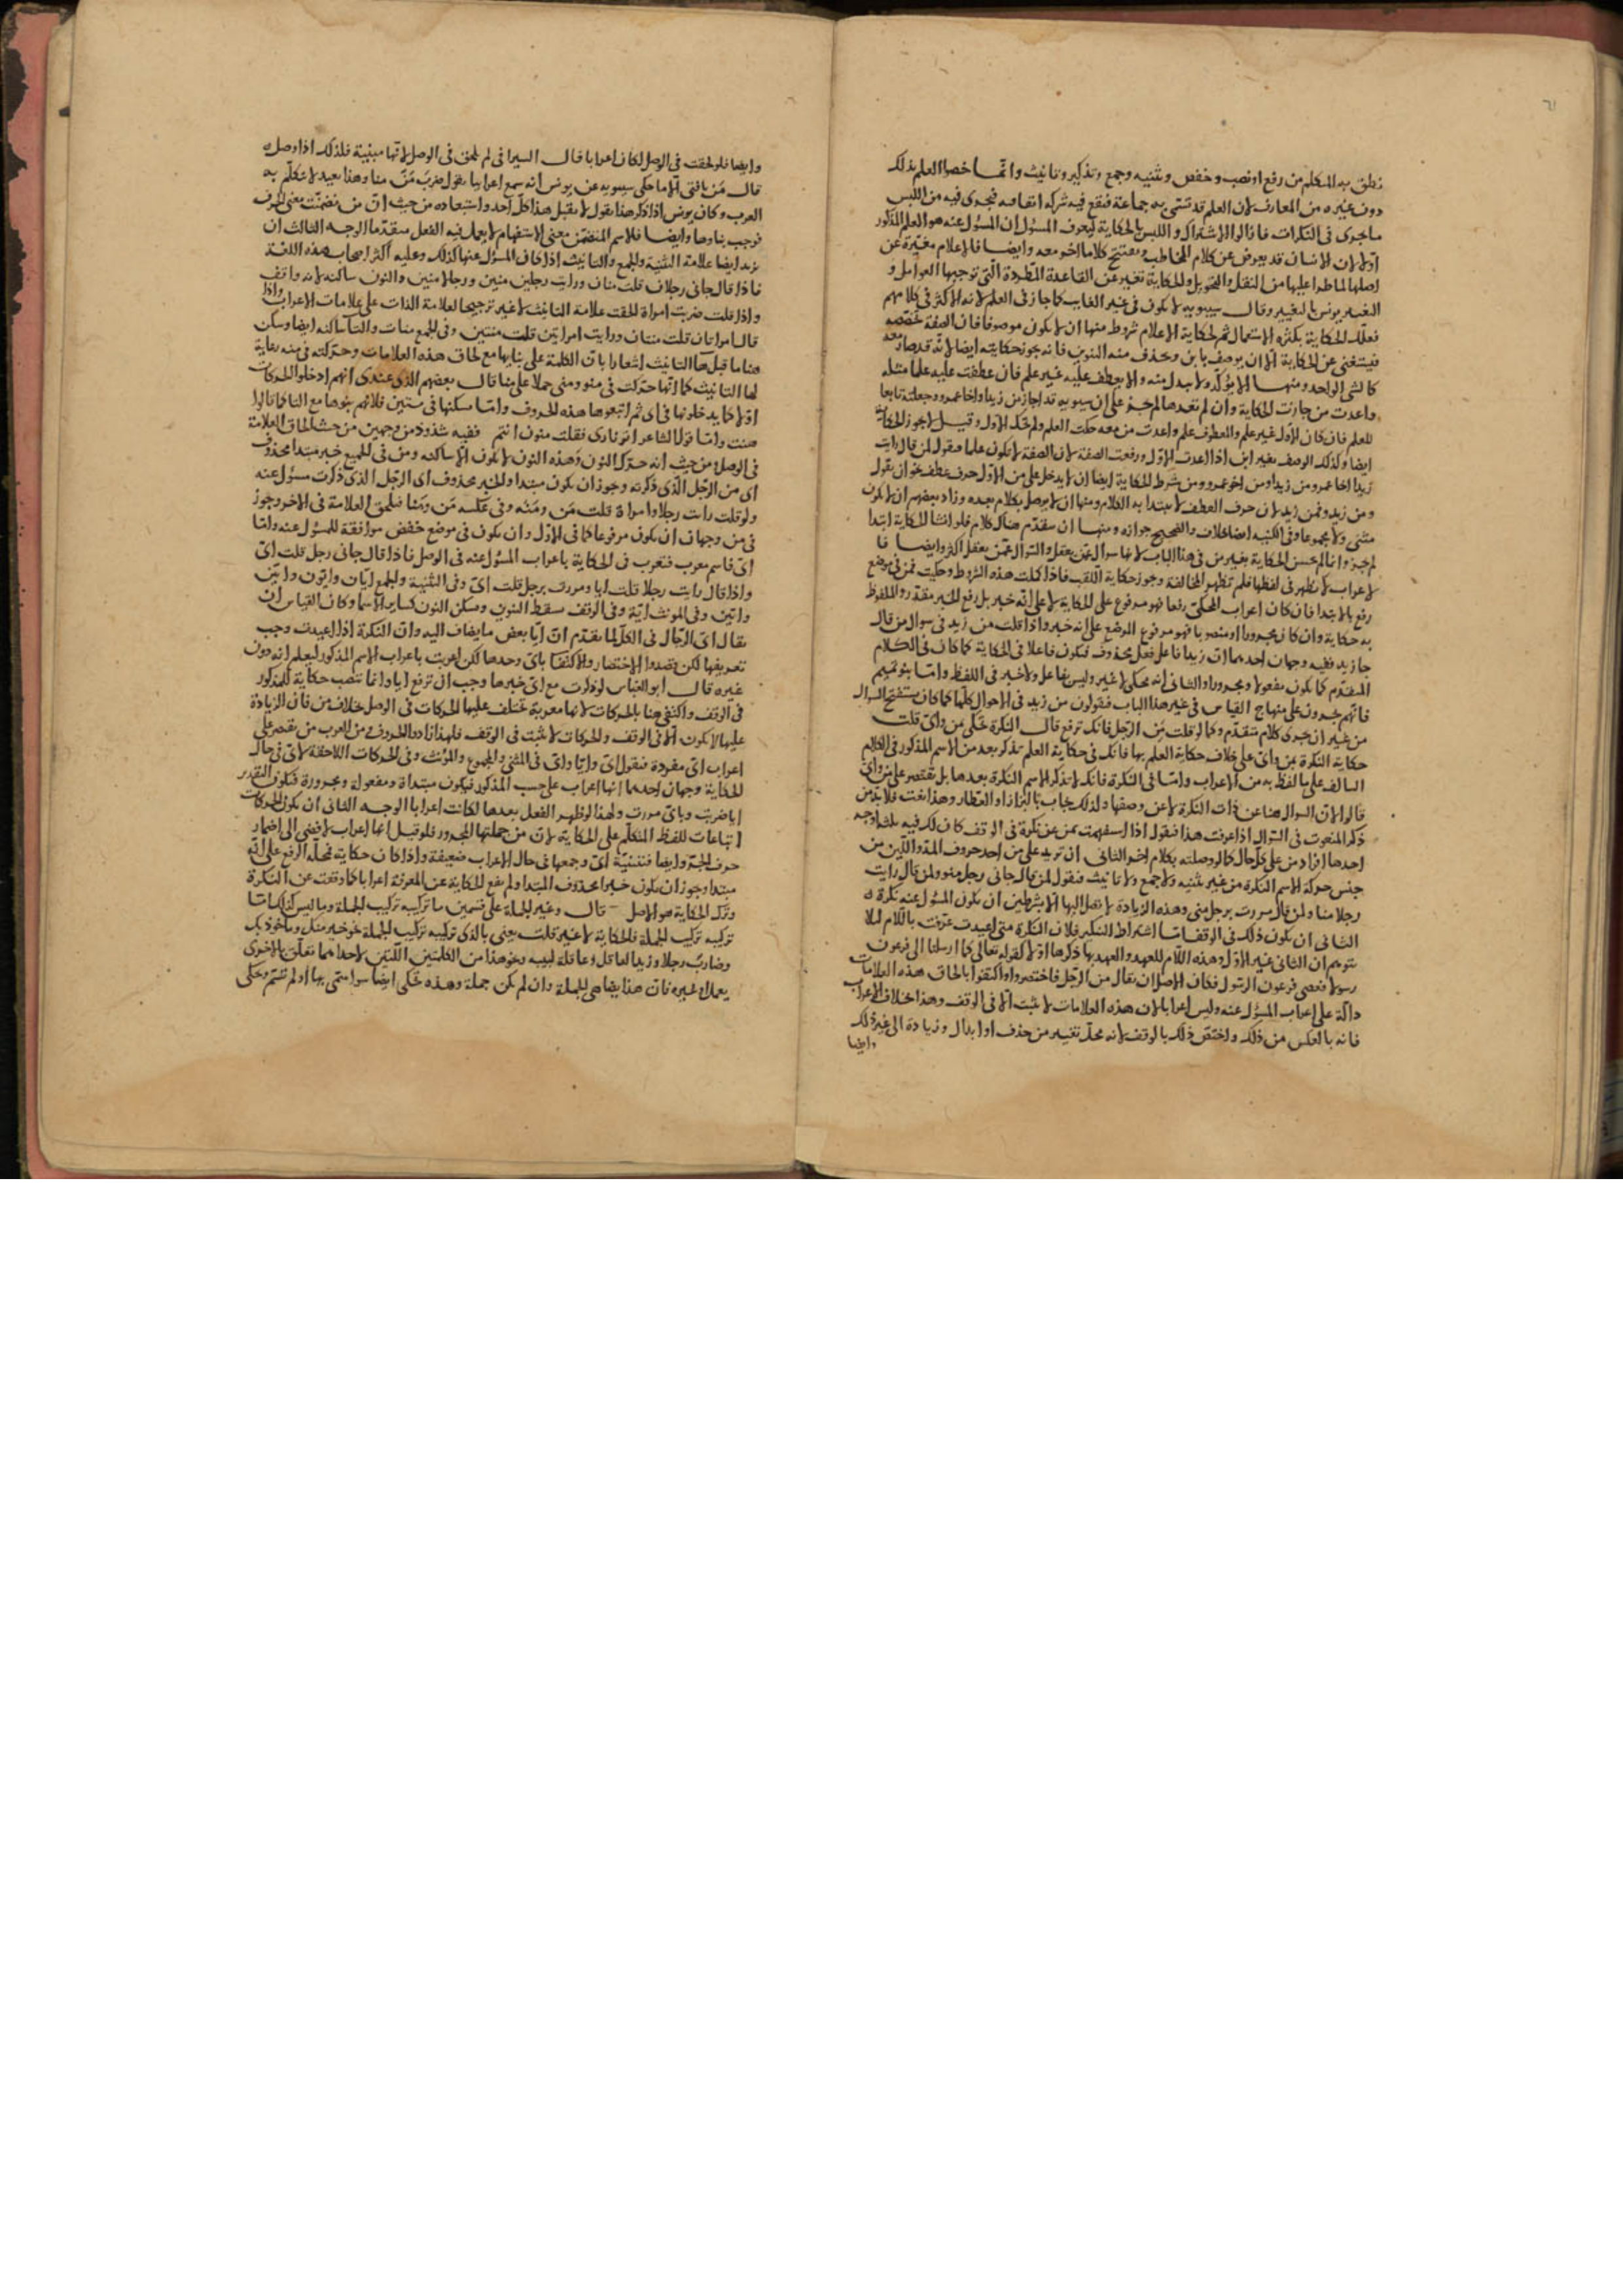 نطق به المتكلم من رفع او نصب وخفض وتثنيه وجمع وتذكير وتانيث وانما خصوا العلم بذلك
دون غيره من المعارف لان العلم قد تسمى به جماعة فيقع فيه شركه اتفاقيه فيجرى فيه من اللبس
ماجرى فى النكرات فازالوا الاشتراك واللبس بالحكاية ليعرف المسؤل ان المسؤل عنه هو العلم المذكور
اولا لان الانسان قد يعرض عن كلام المخاطب ويفتتح كلاما اخر معه وايضا فالاعلام مغيرة عن
اصلها لما طرا عليها من النقل والتحويل والحكاية تغيير عن القاعدة المطردة التى توجبها العوامل و
التغيير يونس بالتغيير وقال سيبويه لا يكون فى غير الغايب كما جاز فى العلم لانه الاكثر فى كلامهم
فعلل الحكاية بكثرة الاستعمال ثم لحكاية الاعلام شروط منها ان لا يكون موصوفا فان الصفة تخصصه
فيستغنى عن الحكاية الا ان يوصف بابن ويحذف منه التنوين فانه يجوز حكايته ايضا لانه قد صار معه
كالشى الواحد ومنها الا يؤكد ولا يبدل منه والا يعطف عليه غير علم فان عطفت عليه علما مثله
واعدت من جازت الحكاية وان لم تعدها لم يجز على ان سيبويه قد اجاز من زيدا واخا عمرو وجعلته تابعا
للعلم فان كان الاول غير علم والمعطوف علم واعدت من معه حكيت العلم ولم تحك الاول وقيل لا يجوز الحكاية
ايضا وكذلك الوصف بغير ابن اذا اعدت الاول ورفعت الصفة لان الصفة لا تكون علما فيقول لمن قال رايت
زيدا اخا عمرو من زيد ومن اخو عمرو ومن شرط الحكاية ايضا ان لا يدخل على من الاول حرف عطف نحو ان يقول
ومن زيد وفمن زيد لان حرف العطف لا يبتدا به الكلام ومنها ان لا يوصل بكلام بعده وزاد بعضهم ان لا يكون
مثنى ولا مجموعا وفى الكنيه ايضا خلاف والصحيح جوازه ومنها ان يتقدم هناك كلام فلو انشا الحكاية ابتدا
لم يجز وانما لم يحسن الحكاية بغير من فى هذا الباب لانها سوال عمن يعقل والسوال عمن يعقل اكثر وايضا فا
لاعراب لا يظهر فى لفظها فلم تظهر المخالفة ويجوز حكاية اللقب فاذا كملت هذه الشروط وحكيت فمن فى موضع
رفع بالابتدا فان كان اعراب المحكى رفعا فهو مرفوع على الحكاية لا على انه خبر بل رفع الخبر مقدر والملفوظ
به حكاية وان كان مجرورا او منصوبا فهو مرفوع الموضع على انه خبر واذا قلت من زيد فى سوال من قال
جا زيد ففيه وجهان احدهما ان زيدا فاعل فعل محذوف فيكون فاعلا فى الحكاية كما كان فى الكلام
المتقدم كما يكون مفعولا ومجرورا والثانى انه محكى لا غير وليس بفاعل ولا خبر فى اللفظ واما بنو تميم
فانهم يجرون على منهاج القياس فى غير هذا الباب فيقولون من زيد فى الاحوال كلها كما كان يستفتح السوال
من غير ان يجرى كلام متقدم وكما لو قلت من الرجل فانك ترفع قال النكرة تحكى بمن واى قلت
حكاية النكرة بمن واى على خلاف حكاية العلم بها فانك فى حكاية العلم تذكر بعد من الاسم المذكور فى الكلام
السالف على ما لفظ به من الاعراب واما فى النكرة فانك لا تذكر الاسم النكرة بعدها بل تقتصر على من واى
قالوا لان السوال هنا عن ذات النكرة لا عن وصفها ولذلك يجاب بالبزاز او العطار وهذا نعت فلا بد من
ذكر المنعوت فى السوال اذا عرفت هذا فنقول اذا استفهمت بمن عن نكرة فى الوقف كان لك فيه ثلثة اوجه
احدها افراد من على كل حال كما لو وصلته بكلام اخر الثانى ان تزيد على من احد حروف المد واللين من
جنس حركة الاسم النكرة من غير تثنيه ولا جمع ولا تانيث فنقول لمن قال جانى رجل منو ولمن قال رايت
رجلا منا ولمن قال مررت برجل منى وهذه الزيادة لا تصل اليها الا بشرطين ان يكون المسؤل عنه نكرة
الثانى ان يكون ذلك فى الوقف اما اشتراط التنكير فلان النكرة متى اعيدت عرفت باللام لئلا
يتوهم ان الثانى غير الاول وهذه اللام للعهد والعهد بها ذكرها اولا كقوله تعالى كما ارسلنا الى فرعون
رسولا فعصى فرعون الرسول فكان الاصل ان يقال من الرجل فاختصروا واكتفوا بالحاق هذه العلامات
دالة على اعراب المسؤل عنه وليس اعرابا لان هذه العلامات لا تثبت الا فى الوقف وهذا خلاف الاعراب
فانه بالعكس من ذلك واختص ذلك بالوقف لانه محل تغيير من حذف او ابدال وزيادة الى غير ذلك
وايضا
وايضا فلو لحقت فى الوصل لكان اعرابا قال السيرافى لم تلحق فى الوصل لانها مبنية فلذلك اذا وصل
قال من يا فتى الا ما حكى سيبويه عن يونس انه سمع اعرابيا يقول ضرب من منا وهذا بعيد لا تكلم به
العرب وكان يونس اذا ذكر هذا يقول لا يقبل هذا كل احد واستبعاده من حيث ان من تضمنت معنى الحرف
فوجب بناوها وايضا فلاسم المتضمن معنى الاستفهام لا يعمل فيه الفعل متقدما الوجه الثالث ان
تزيد ايضا علامة التثنية والجمع والتانيث اذا كان المسؤل عنها كذلك وعليه اكثر اصحاب هذه اللغة
فاذا قال جانى رجلان قلت منان ورايت رجلين منين ورجالا منين والنون ساكنة لانه واقف
واذا قلت ضربت امراة لحقت علامة التانيث لا غير ترجيحا لعلامة الذات على علامات الاعراب واذا
قال امراتان قلت منتان ورايت امراتين قلت منتين وفى الجمع منات والتا ساكنه ايضا وسكن
هنا ما قبل ها التانيث اشعارا بان الكلمة على بنايها مع لحاق هذه العلامات وحركته فى منه رعاية
لها التانيث كما انها حركت فى منو ومنى حملا على منا قال بعضهم الذى عندى انهم ادخلوا الحركات
اولا كما يدخلونها فى اى ثم اتبعوها هذه الحروف واما سكنها فى منتين فلانهم بنوها مع التا كما قالوا
هنت واما قول الشاعر اتو نارى فقلت منون انتم ففيه شذوذ من وجهين من حيث الحاق العلامة
فى الوصل ومن حيث انه حرك النون وهذه النون لا تكون الا ساكنه ومن فى الجميع خبر مبتدا محذوف
اى من الرجل الذى ذكرته ويجوز ان يكون مبتدا والخبر محذوف اى الرجل الذى ذكرت مسؤل عنه
ولو قلت رايت رجلا وامراة قلت من ومنه وفى عكسه من ومنا فتلحق العلامة فى الاخر ويجوز
فى من وجهان ان يكون مرفوعا كما فى الاول وان يكون فى موضع خفض موافقة للمسؤل عنه واما
اى فاسم معرب فتعرب فى الحكاية باعراب المسؤل عنه فى الوصل فاذا قال جانى رجل قلت اى
واذا قال رايت رجلا قلت ايا ومررت برجل قلت اى وفى التثنية والجمع ايان وايون وايين
وايين وفى المونث اية وفى الوقف سقط التنوين وتسكن النون كساير الاسما وكان القياس ان
يقال اى الرجال فى الكل لما تقدم ان ايا بعض ما يضاف اليه وان النكرة اذا اعيدت وجب
تعريفها لكن قصدوا الاختصار والاكتفا باى وحدها لكن اعربت باعراب الاسم المذكور ليعلم انه دون
غيره قال ابو العباس لو ذكرت مع اى خبرها وجب ان ترفع ايا وانما تنصب حكاية للمذكور
فى الوقف واكتفى هنا بالحركات لانها معربة تختلف عليها الحركات فى الوصل بخلاف من فان الزيادة
عليها لا يكون الا فى الوقف والحركات لا تثبت فى الوقف فلهذا زادوا الحروف ومن العرب من يقتصر على
اعراب اى مفردة فيقول اى وايا واى فى المثنى والمجموع والمؤنث وفى الحركات اللاحقة لاى فى حال
الحكاية وجهان احدهما انها اعراب على حسب المذكور فيكون مبتداة ومفعولة ومجرورة فيكون التقدير
ايا ضربت وباى مررت ولهذا لو ظهر الفعل بعدها لكانت اعرابا الوجه الثانى ان يكون الحركات
اتباعات للفظ المتكلم على الحكاية لان من جملتها المجرور فلو قيل انها اعراب لافضى الى اضمار
حرف الجر وايضا فتثنية اى وجمعها فى حال الاعراب ضعيفة واذا كان حكاية فمحله الرفع على انه
مبتدا ويجوز ان يكون خبرا محذوف المبتدا ولم يقع الحكاية عن المعرفة اعرابا كما وقعت عن النكرة
وترك الحكاية هو الاصل قال وغير الجملة على قسمين ما تركيبه تركيب الجملة وما ليس كذلك اما
تركيبه تركيب الجملة فالحكاية لا غير قلت يعنى بالذى تركيبه تركيب الجملة نحو خير منك وماخوذ بك
وضارب رجلا وزيد العاقل وعاقلة لبيبه ونحو هذا من الكلمتين اللتين لاحداهما تعلق بالاخرى
بعمل او غيره فان هذا يضاهى الجملة وان لم يكن جملة وهذه تحكى ايضا سوا سمى بها او لم تسم وحكى